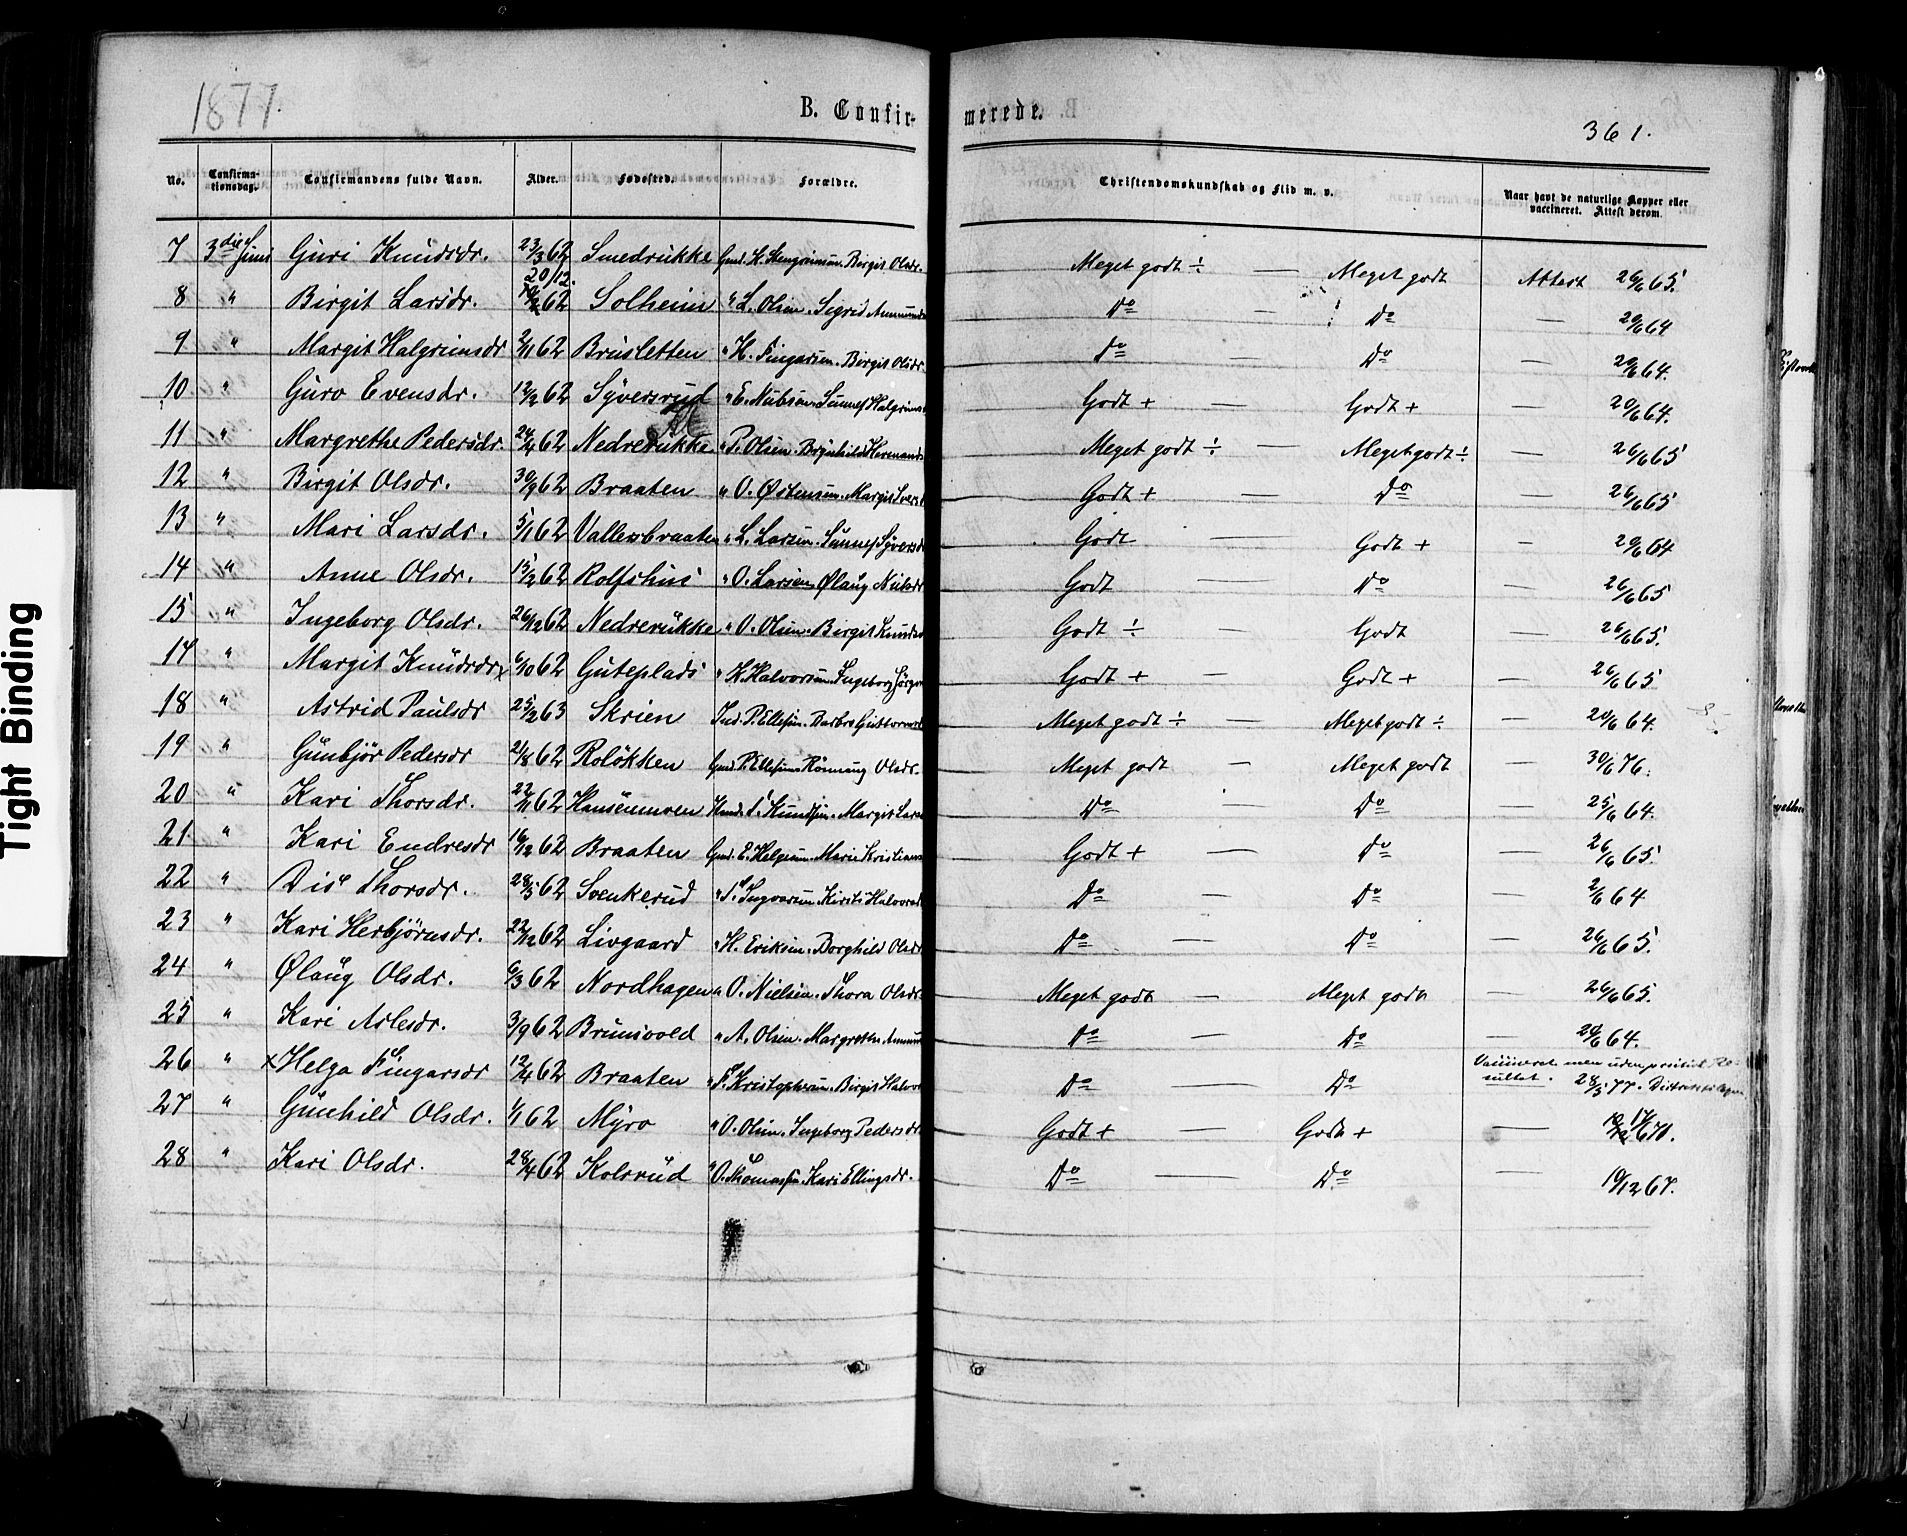 1877.
B. Confirmerede.
361.
No. Confirmationsdag. Confirmandens fulde Navn. Alder. Fødested. Forældre. Christendomskundskab og Flid m. v. Naar havt de naturlige Kopper eller vaccineret. Attest derom.
7 3die Juni Guri Knudsdr. 23/3 62 Smedrukke Birgit Olsdr. Meget godt ÷ — Meget godt Attest 26/6 65.
20/12.
8 " Birgit Larsdr. 62 Solheim " L. Olsen. Sigrid Do — Do — 20/6 64
9 " Margit Halgrimsdr 2/11 62 Brusletten " H. Fingarsen. Birgit Olsdr. Do — Do — 20/6 64.
10 " Guro Evensdr. 12/2 62 Syversrud " E. Nubsen. Sunnef Halgrims Godt + — Godt + — 20/6 64.
11 " Margrethe Pedersdr. 24/4 62 Nedrerukke " P. Olsen. Meget godt ÷ — Meget godt ÷ — 26/6 65
12 " Birgit Olsdr. 30/9 62 Braaten " O. Østensen. Margit Godt + — Do — 26/6 65
13 " Mari Larsdr. 5/1 62 " L. Larsen. Sunnef Syversd Godt Godt + — 20/6 64
14 " Anne Olsdr. 62 Rolfshus " O. Larsen. Ølaug Godt Do — 26/6 65
15 " Ingeborg Olsdr. 26/12 62 Nedrerukke " O. Olsen. Birgit Godt ÷ — Godt — 26/6 65.
17 " Margit Knudsdr x 6/10 62 Guteplads " K. Halvorsen. Ingeborg Godt + — Godt + — 26/6 65
18 " Astrid Paulsdr 25/2 63 Skrien Ind. P. Ellefsen. Barbro Meget godt ÷ — Meget godt ÷ — 20/6 64.
19 " Gunbjør Pedersdr 21/8 62 Roløkken Gmd. P. Ellefsen. Rønnaug Olsdr. Meget godt — Meget godt — 30/6 76.
20 " Kari Thorsdr. 22/11 62 Hansemoen T. Knudsen. Margit Lars Do — Do — 25/6 64.
21 " Kari Endresdr 16/12 62 Braaten Gmd. E. Helgesen. Marie Kristians Godt + — Do — 26/6 65.
22 " Dis Thorsdr. 28/5 62 Svenkerud " T. Ingvarsen. Kirsti Halvorsd Do — Do — 2/6 64
23 " Kari Herbjørnsdr. 22/12 62 Livgaard " H. Eriksen. Borghild Olsdr Do — Do — 26/6 65.
24 " Ølaug Olsdr. 6/3 62 Nordhagen " O. Nielsen. Thora Olsdr. Meget godt — Meget godt — 26/6 65.
25 " Kari Aslesdr. 3/9 62 Brunsvold " A. Olsen. Margrethe Do — Do — 20/6 64.
26 " x Helga Fingarsdr 12/4 62 Braaten " F. Kristophersen. Birgit Halvor Do — Do Vaccineret men uden positivt Resultat. 28/5 77.
27 " Gunhild Olsdr. 1/1 62 Myro " O. Olsen. Ingeborg Pedersdr Godt + — Godt + —
28 " Kari Olsdr. 28/4 62 Kolsrud " O. Thomassen. Kari Ellingsdr. Do — Do — 10/12 67.
Tight Binding